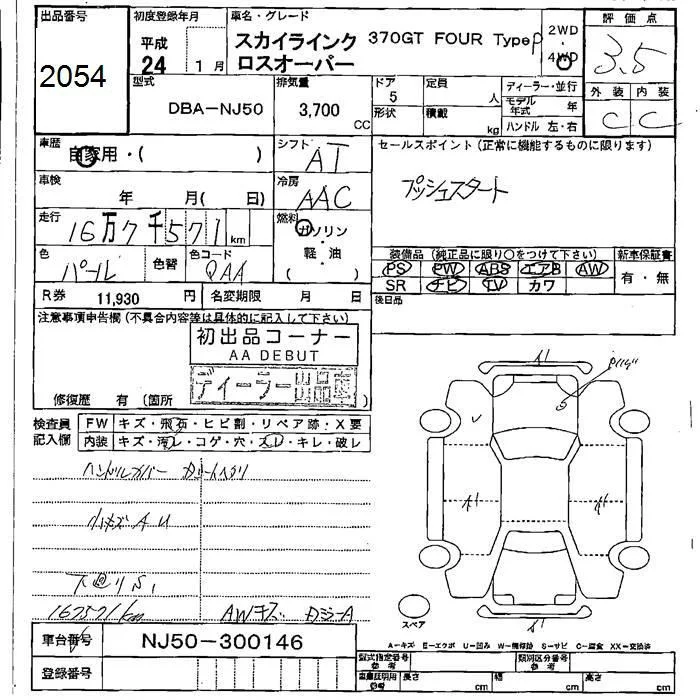 出品番号
2054
初度登録年月
平成
24 1月
車名・グレード
スカイラインク 370GT FOUR Type P
ロスオーバー
2WD
・
4WD
評価点
3.5
型式
DBA-NJ50
排気量
3,700 CC
ドア
5
形状
定員
人
積載
kg
ディーラー・並行
モデル年式 年
ハンドル 左・右
外装 内装
C C
車歴
自家用・( )
シフト
AT
セールスポイント(正常に機能するものに限ります)
プッシュスタート
車検
年 月( 日)
冷房
AAC
走行
16万7千571km
燃料
ガソリン
・
軽・油
( )
色
パール
色替
色コード
QAA
装備品(純正品に限り○をつけて下さい)
新車保証書
PS PW ABS エアB AW
SR ナビ TV カワ
有・無
R券 11,930 円
名変期限 月 日
後日品
注意事項申告欄(不具合内容等は具体的に記入して下さい)
初出品コーナー
AA DEBUT
ディーラー出品車
修復歴 有(箇所 )
検査員
記入欄
FW キズ・飛石・ヒビ割・リペア跡・X要
内装 キズ・汚レ・コゲ・穴・スレ・キレ・破レ
ハンドルカバー
小キズAU
下廻りS1
167571km
AWキズ
A1
A1
A1
A1
スペア
車台番号
NJ50-300146
登録番号
A-キズ E-エクボ U-凹み W-補修跡 S-サビ C-腐食 XX-交換済
型式指定番号
参考
類別区分番号
参考
車庫証明用
参考
長さ cm
幅 cm
高さ cm